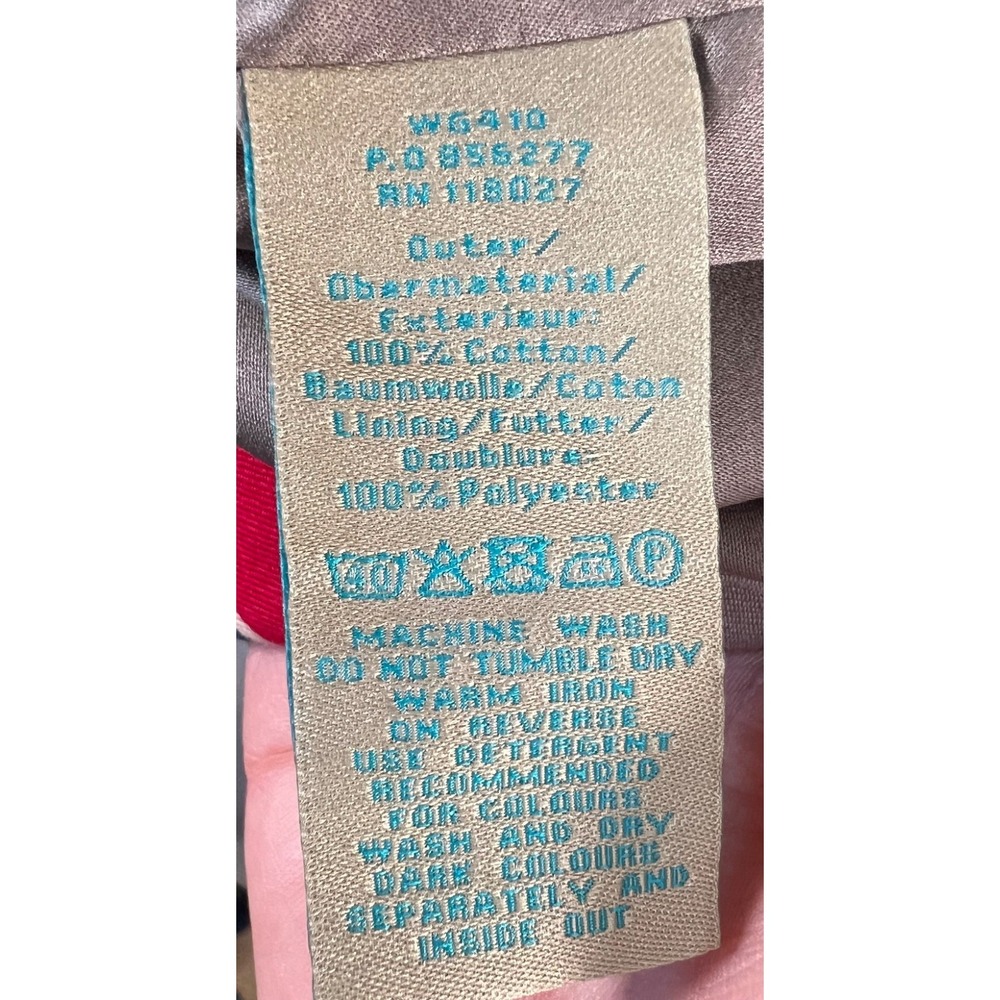 WG410
P.O 856277
RN 118027
Outer/
Obermaterial/
Exterieur:
100% Cotton/
Baumwolle/Coton
Lining/Futter/
Doublure:
100% Polyester
40 P
MACHINE WASH
DO NOT TUMBLE DRY
WARM IRON
ON REVERSE
USE DETERGENT
RECOMMENDED
FOR COLOURS
WASH AND DRY
DARK COLOURS
SEPARATELY AND
INSIDE OUT